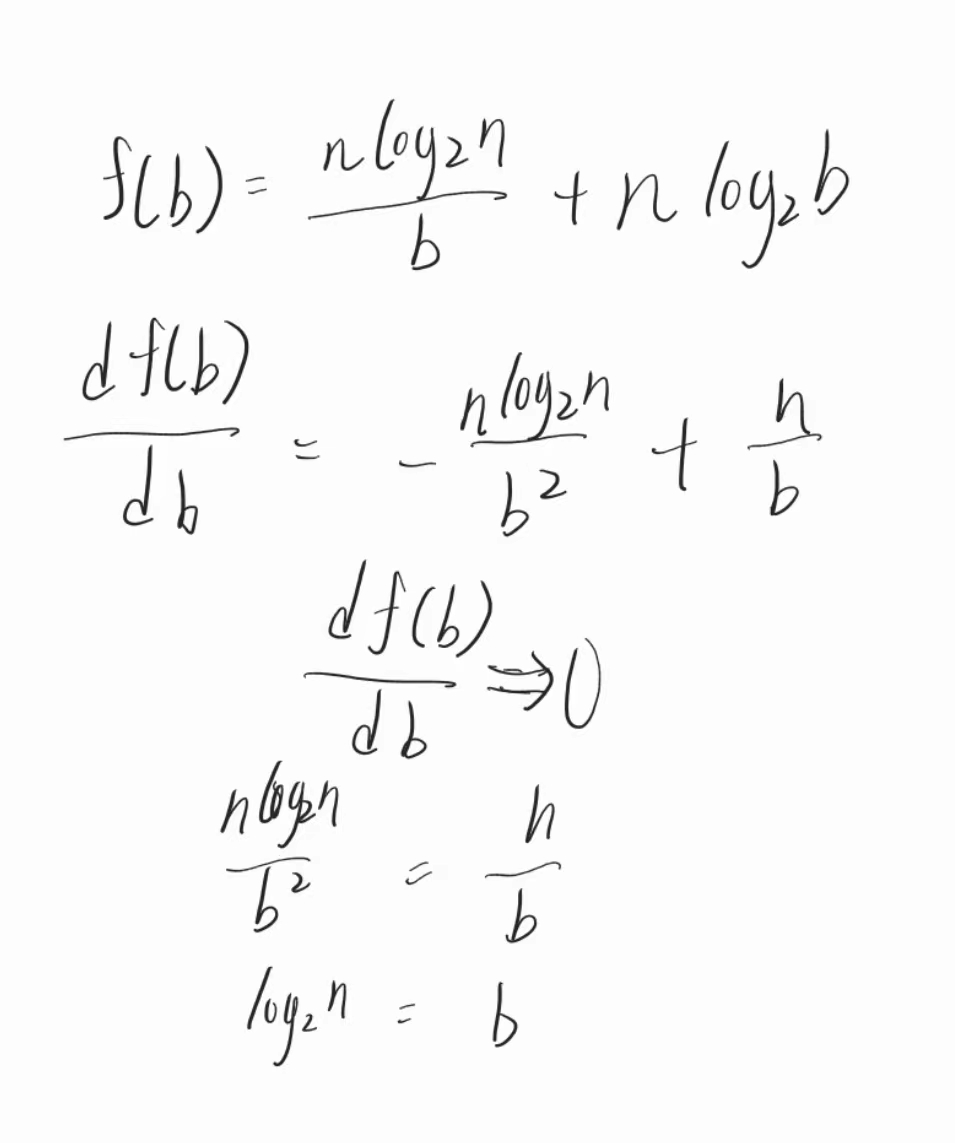 f(b) = \frac{n log_2 n}{b} + n log_2 b
\frac{d f(b)}{d b} = - \frac{n log_2 n}{b^2} + \frac{n}{b}
\frac{d f(b)}{d b} ⇒ 0
\frac{n log_2 n}{b^2} = \frac{n}{b}
log_2 n = b